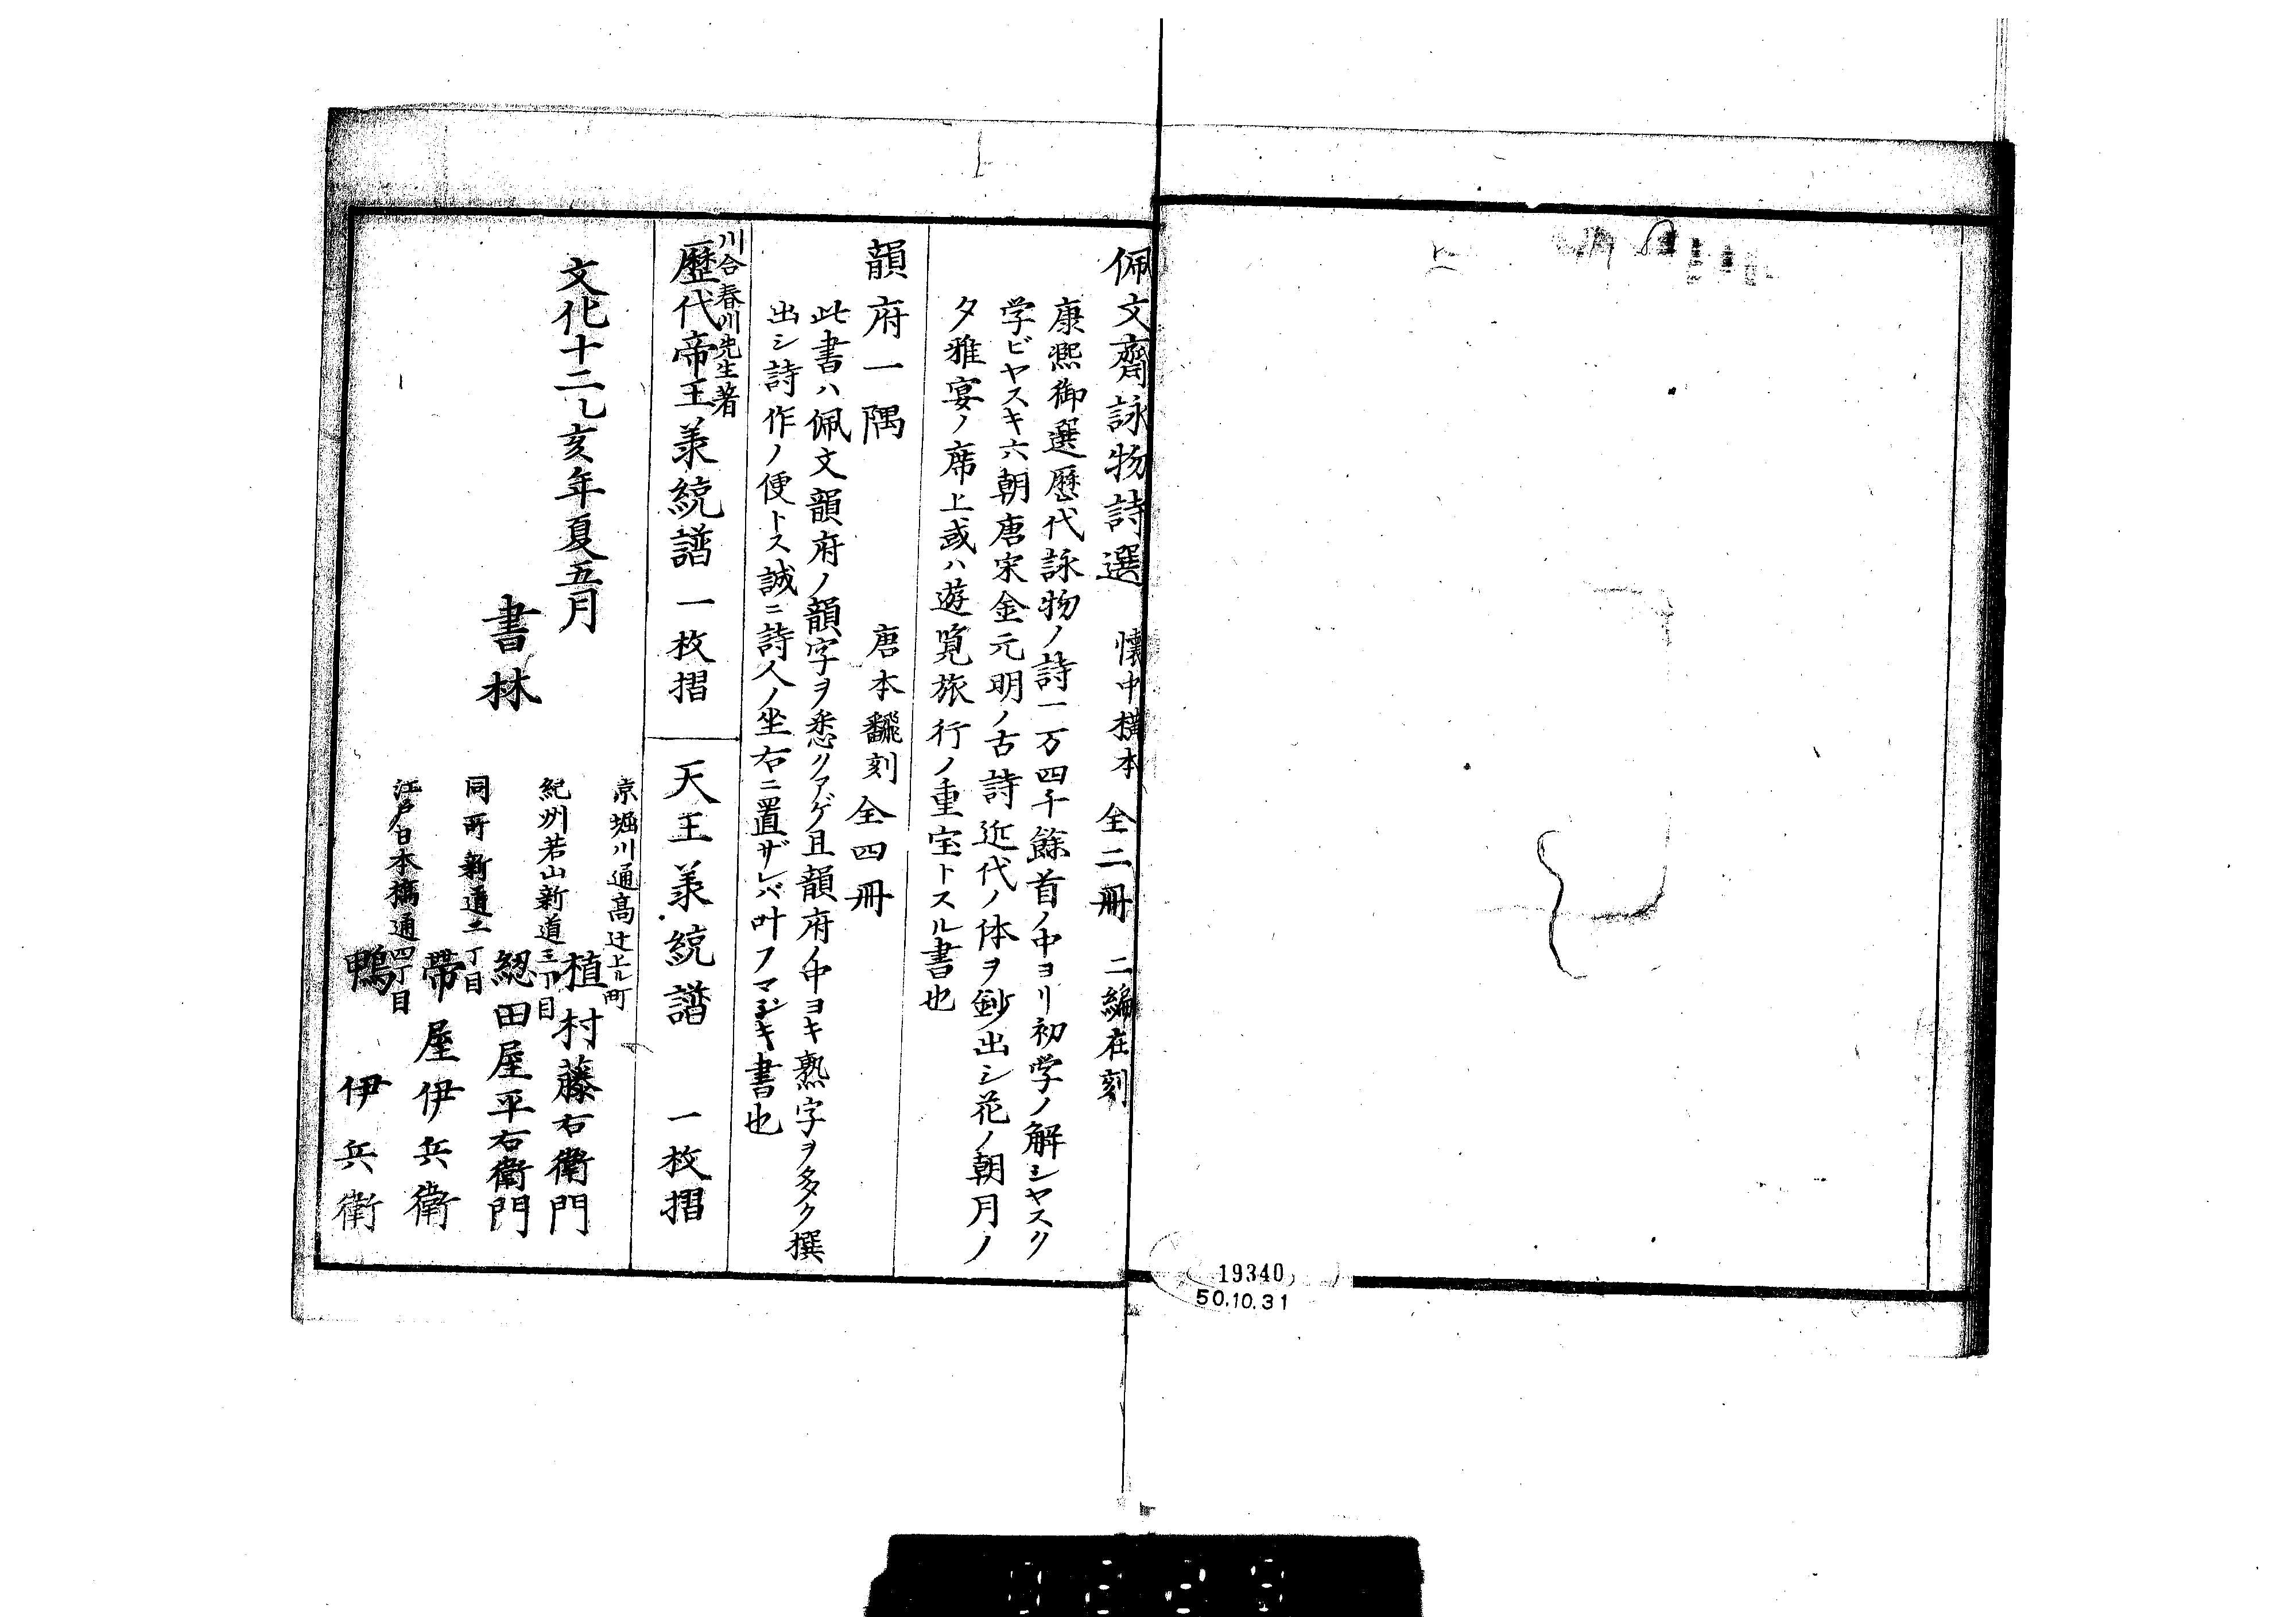 佩文齋詠物詩選　懐中横本　全二冊　二編在刻
康熙御選歴代詠物ノ詩一万四千餘首ノ中ヨリ初学ノ解シヤスク
学ビヤスキ六朝唐宋金元明ノ古詩近代ノ体ヲ鈔出シ花ノ朝月ノ
夕雅宴ノ席上或ハ遊覧旅行ノ重宝トスル書也
韻府一隅　唐本飜刻　全四冊
此書ハ佩文韻府ノ韻字ヲ悉クアゲ且韻府ノ中ヨキ熟字ヲ多ク撰
出シ詩作ノ便トス誠ニ詩人ノ坐右ニ置ザレバ叶フマジキ書也
川合春川先生著
歴代帝王羕統譜　一枚摺
天王羕統譜　一枚摺
文化十二乙亥年夏五月
書林
京堀川通高辻上ル町
植村藤右衛門
紀州若山新道三丁目
綛田屋平右衛門
同所新通二丁目
帯屋伊兵衛
江戸日本橋通四丁目
鴨伊兵衛
19340
50.10.31